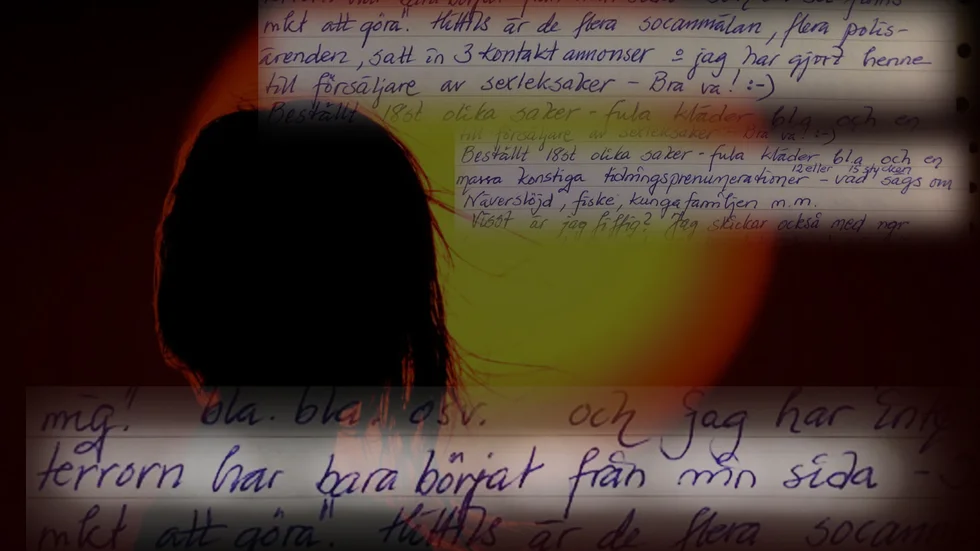 mkt att göra". Hittils är de flera socanmälan, flera polis-
ärenden, satt in 3 kontaktannonser o jag har gjort henne
till försäljare av sexleksaker - Bra va! :-)
Beställt 18st olika saker - fula kläder bla och en
till försäljare av sexleksaker - Bra va! :-)
Beställt 18st olika saker - fula kläder bla och en
12 eller 15 stycken
massa konstiga tidningsprenumerationer - vad sägs om
Näverslöjd, fiske, kungafamiljen m.m.
Visst är jag fiffig? Jag skickar också med ngr
mig". bla. bla. osv. och jag har
terrorn har bara börjat från min sida -
mkt att göra". Hittils är de flera